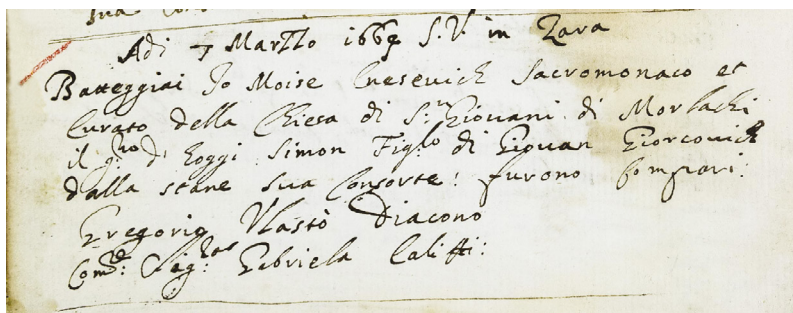 Adi 7 Marzo 1669 S.V. in Zara
Batteggiai Io Moise Cnesevich Sacromonaco et
Curato della Chiesa di S:n Giovani di Morlachi
il g:no d' hoggi Simon Figlo di Giovan Giorcovich
dalla stane sua Consorte: furono Compari:
Gregorio Vlastò Diacono
Com: Sig:ra Gabriela